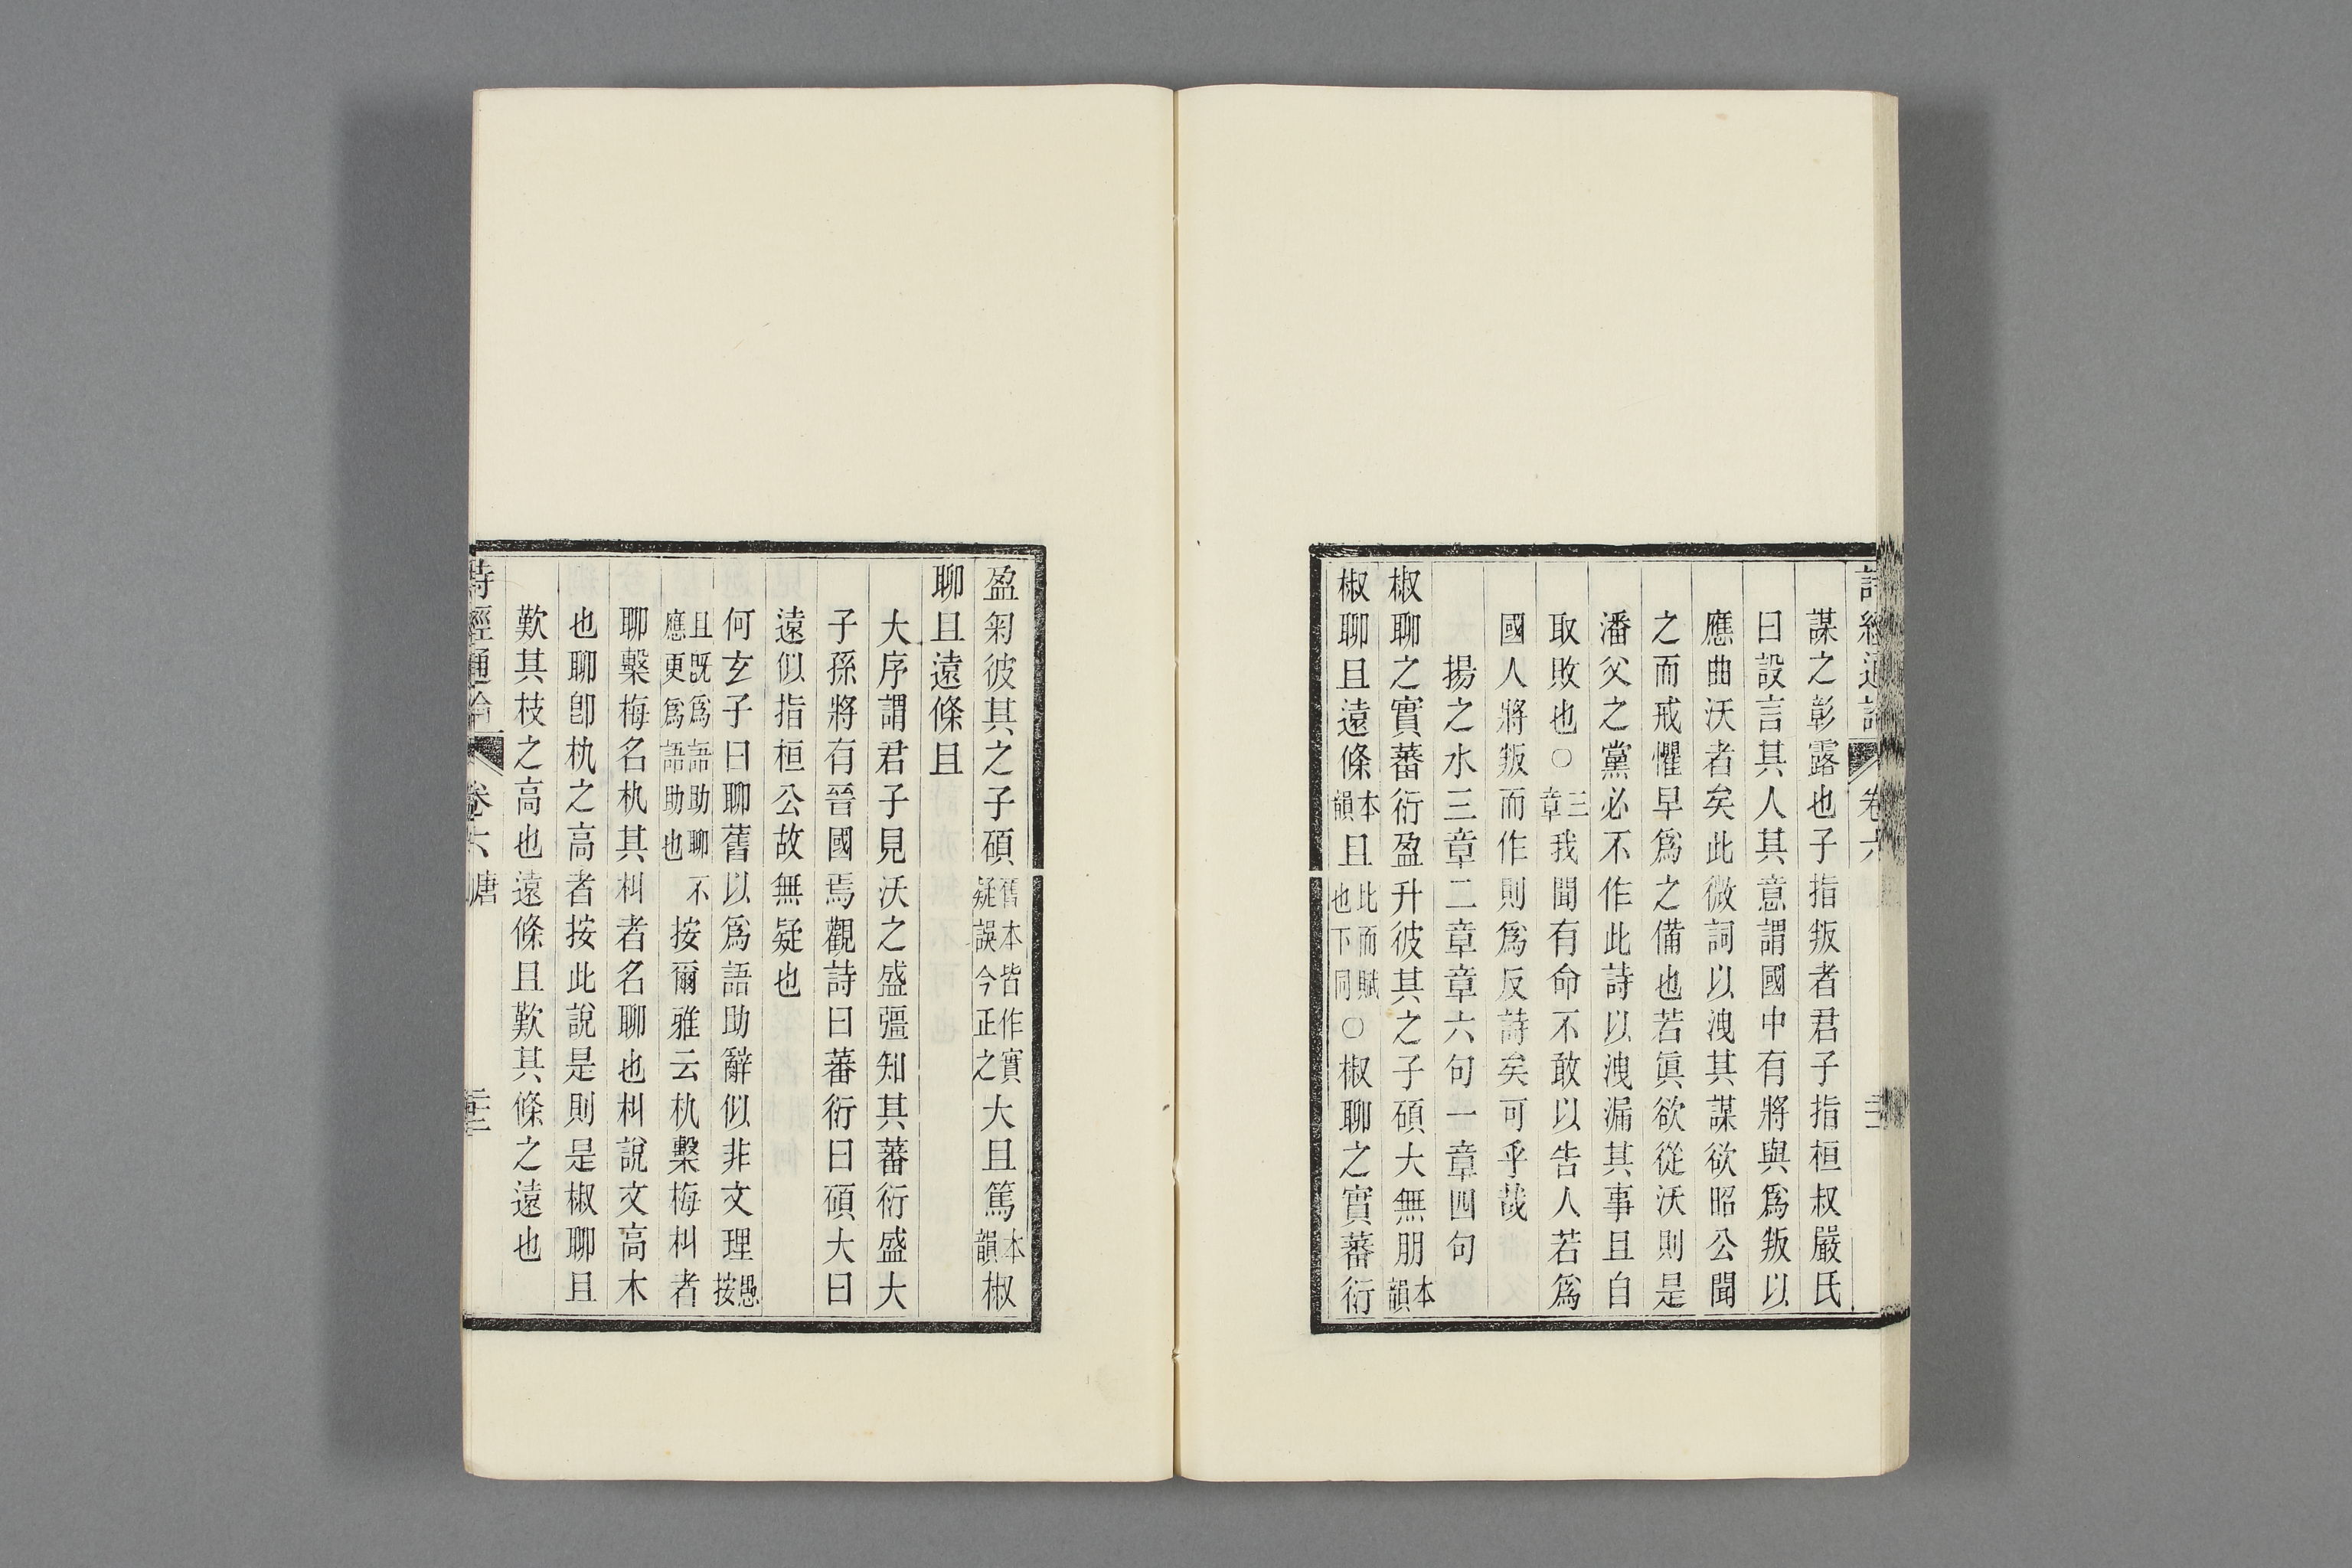 謀之彰露也子指叛者君子指桓叔嚴氏
曰設言其人其意謂國中有將與爲叛以
應曲沃者矣此微詞以洩其謀欲昭公聞
之而戒懼早爲之備也若眞欲從沃則是
潘父之黨必不作此詩以洩漏其事且自
取敗也○三章我聞有命不敢以告人若爲
國人將叛而作則爲反詩矣可乎哉
揚之水三章二章章六句一章四句
椒聊之實蕃衍盈升彼其之子碩大無朋本韻
椒聊且遠條本韻且比而賦也下同○椒聊之實蕃衍
盈匊彼其之子碩舊本皆作實疑誤今正之大且篤本韻椒
聊且遠條且
大序謂君子見沃之盛彊知其蕃衍盛大
子孫將有晉國焉觀詩曰蕃衍曰碩大曰
遠似指桓公故無疑也
何玄子曰聊舊以爲語助辭似非文理愚按
且既爲語助聊不應更爲語助也按爾雅云朹檕梅朻者
聊檕梅名朹其朻者名聊也朻說文高木
也聊卽朹之高者按此說是則是椒聊且
歎其枝之高也遠條且歎其條之遠也
詩經通論 卷六 唐